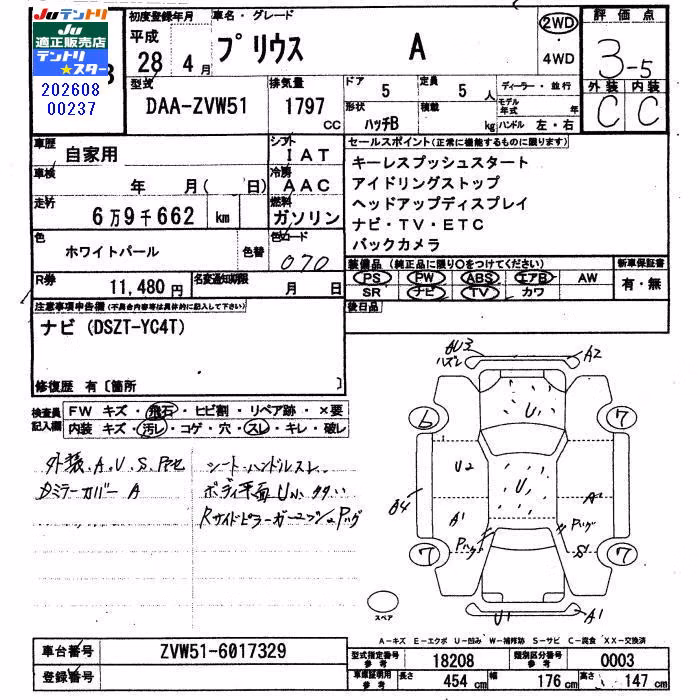 Juテントリ
Ju
適正販売店
テントリ
★スター
202608
00237
初度登録年月
平成
28 4月
車名・グレード
プリウス A
2WD
4WD
評価点
3-5
外装 内装
C C
型式
DAA-ZVW51
排気量
1797
CC
ドア
5
定員
5人
形状
ハッチB
積載
kg
ディーラー・並行
モデル年式 年
ハンドル 左・右
車歴
自家用
シフト
IAT
車検
年 月( 日)
冷房
AAC
走行
6万9千662 km
燃料
ガソリン
色
ホワイトパール
色替
色コード
070
R券
11,480円
名変通知期限
月 日
セールスポイント(正常に機能するものに限ります)
キーレスプッシュスタート
アイドリングストップ
ヘッドアップディスプレイ
ナビ・TV・ETC
バックカメラ
装備品(純正品に限り○をつけてください)
PS PW ABS エアB AW
SR ナビ TV カワ
新車保証書
有・無
後日品
注意事項申告欄(不具合内容等は具体的に記入して下さい)
ナビ(DSZT-YC4T)
修復歴 有〔箇所 〕
検査員
記入欄
FW キズ・飛石・ヒビ割・リペア跡・×要
内装 キズ・汚レ・コゲ・穴・スレ・キレ・破レ
外装、A、U、S、
ミラーカバー A
シートハンドルスレ
ボディ平面U
AU3
ハズレ
A2
6
7
U
U2
U
A4
A1
A2
Pハゲ
Pハゲ
7
S1
7
U1
A1
スペア
A-キズ E-エクボ U-凹み W-補修跡 S-サビ C-腐食 XX-交換済
車台番号
ZVW51-6017329
登録番号
型式指定番号
参考
18208
類別区分番号
参考
0003
車庫証明用
参考
長さ
454cm
幅
176cm
高さ
147cm